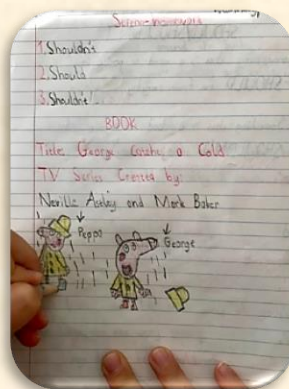 1. Shouldn't
2. Should
3. Shouldn't
BOOK
Title: George Catche a Cold
TV Series Created by:
Neville Astley and Mark Baker
Peppa
George